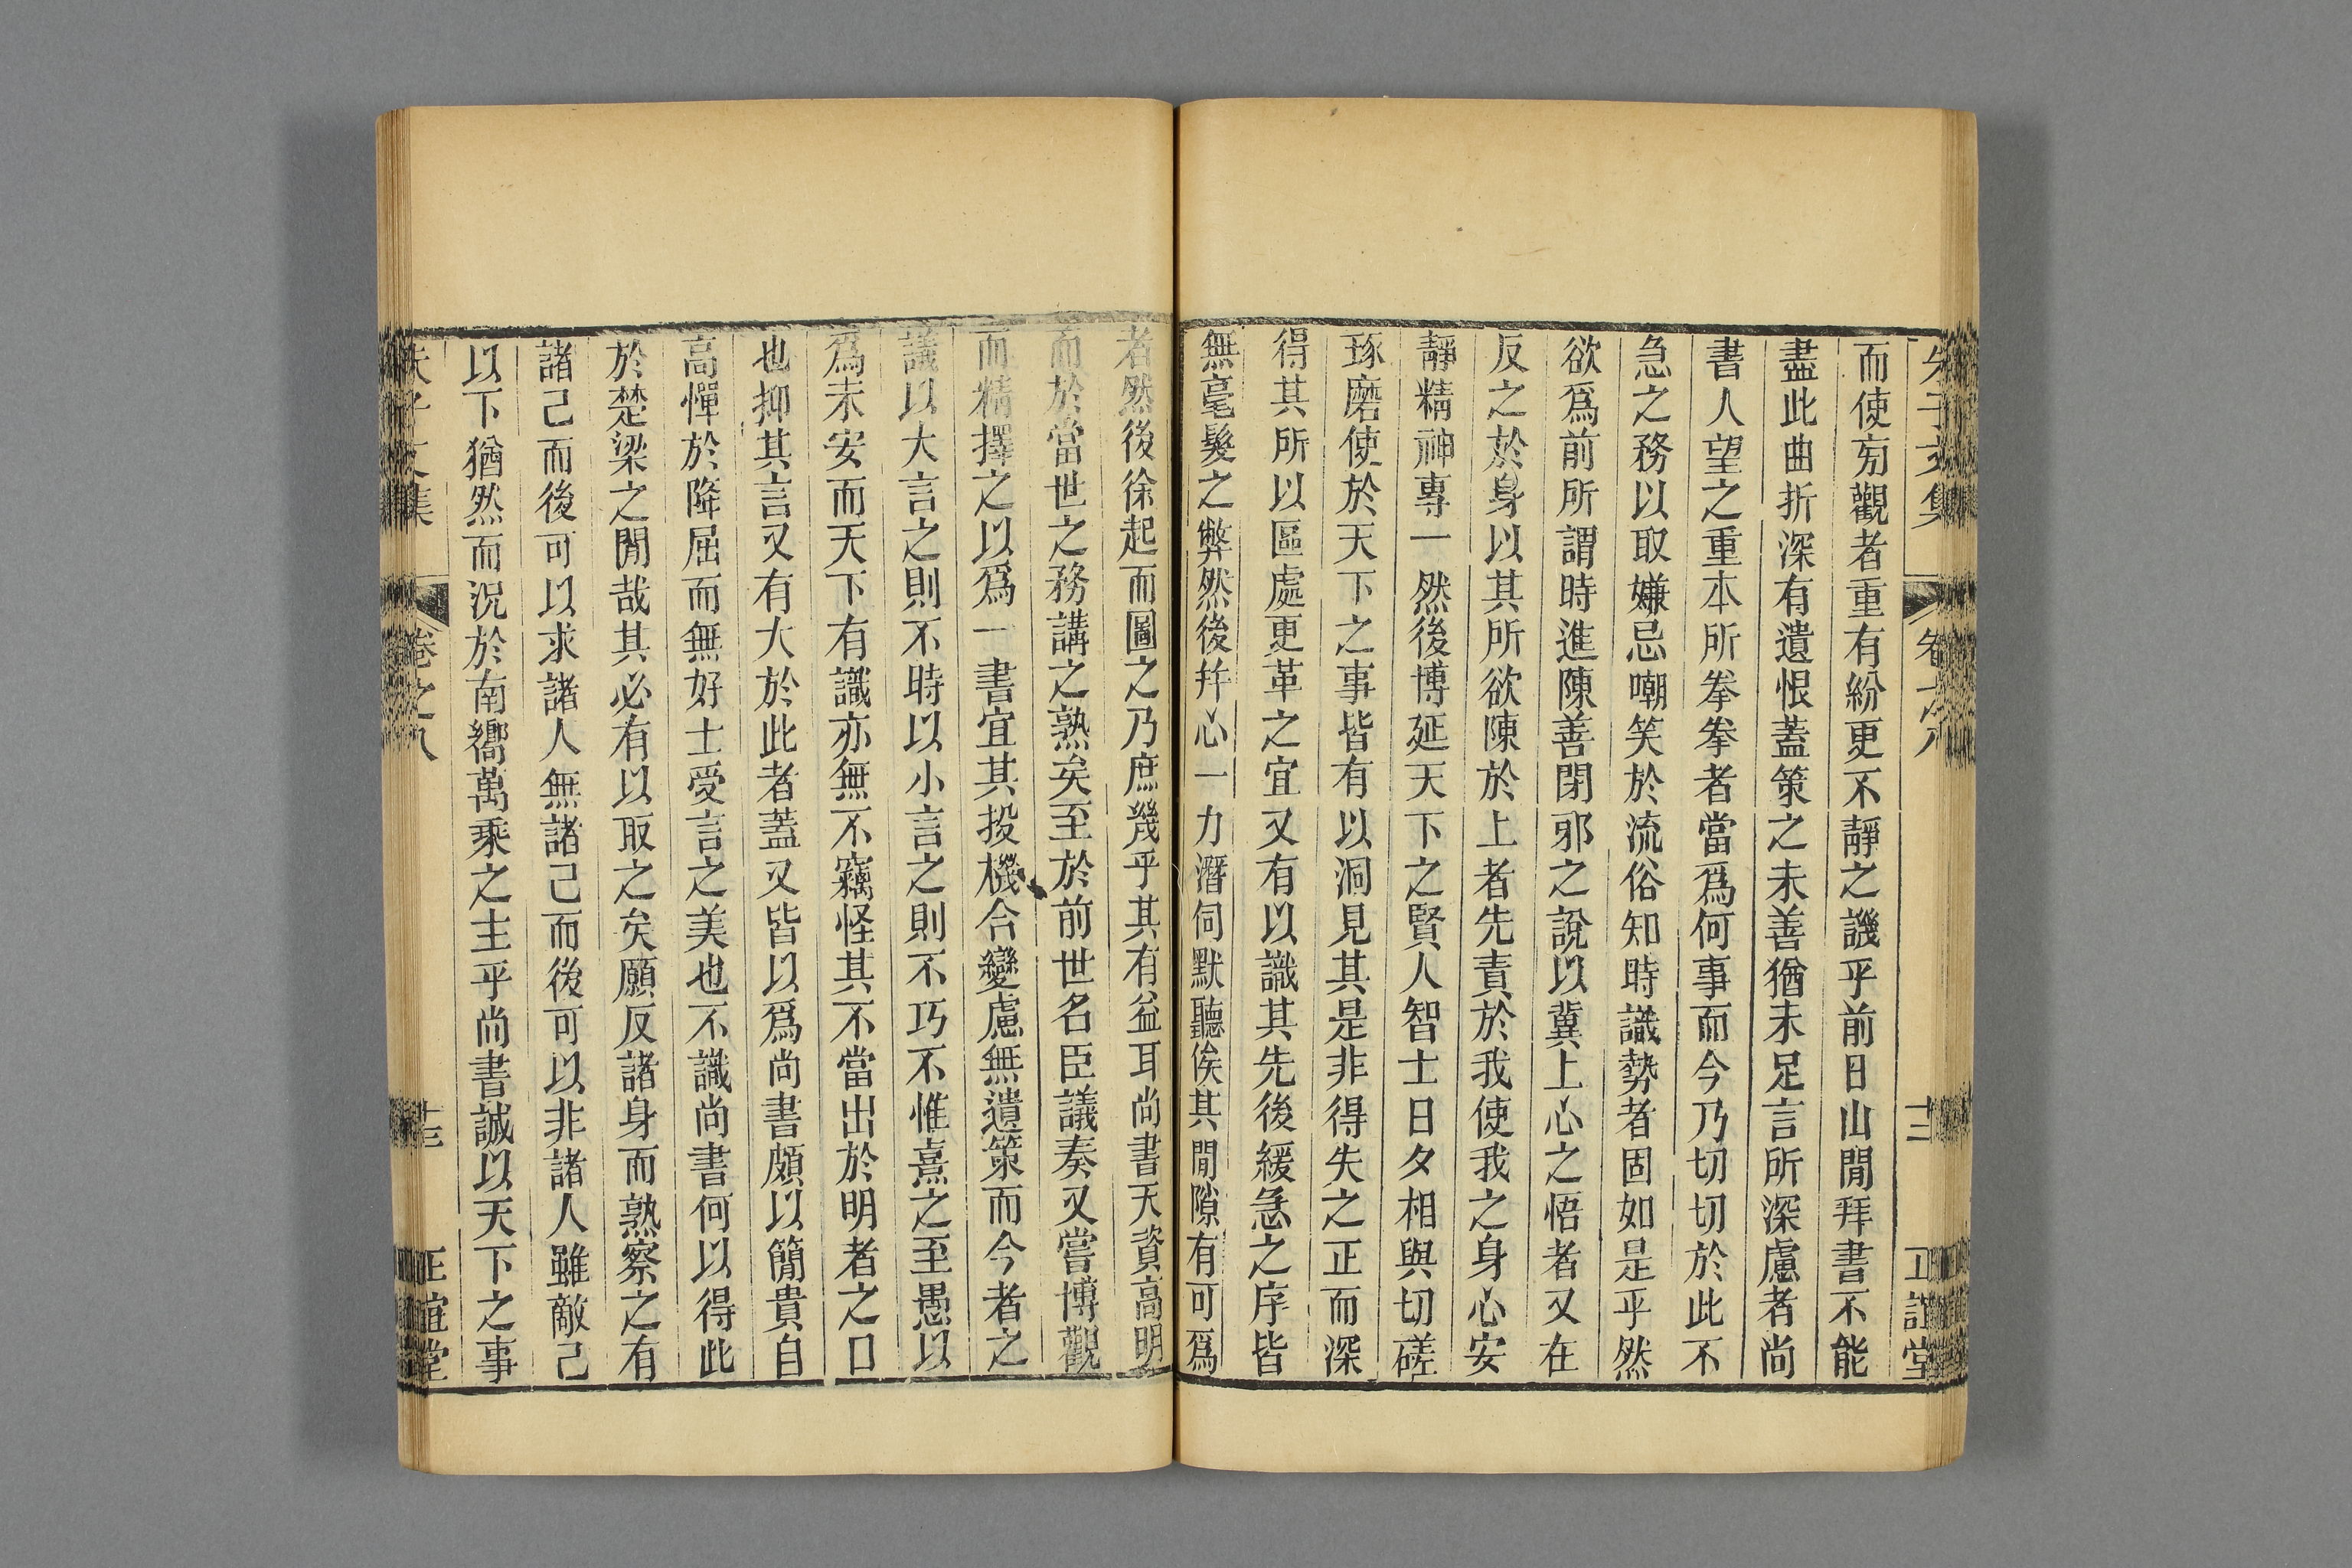 朱子文集
卷之八
十二
正誼堂
而使旁觀者重有紛更不靜之譏乎前日山閒拜書不能
盡此曲折深有遺恨蓋策之未善猶未足言所深慮者尚
書人望之重本所拳拳者當爲何事而今乃切切於此不
急之務以取嫌忌嘲笑於流俗知時識勢者固如是乎然
欲爲前所謂時進陳善閉邪之說以冀上心之悟者又在
反之於身以其所欲陳於上者先責於我使我之身心安
靜精神專一然後博延天下之賢人智士日夕相與切磋
琢磨使於天下之事皆有以洞見其是非得失之正而深
得其所以區處更革之宜又有以識其先後緩急之序皆
無毫髮之弊然後幷心一力潛伺默聽俟其閒隙有可爲
者然後徐起而圖之乃庶幾乎其有益耳尚書天資高明
而於當世之務講之熟矣至於前世名臣議奏又嘗博觀
而精擇之以爲一書宜其投機合變慮無遺策而今者之
議以大言之則不時以小言之則不巧不惟熹之至愚以
爲未安而天下有識亦無不竊怪其不當出於明者之口
也抑其言又有大於此者蓋又皆以爲尚書頗以簡貴自
高憚於降屈而無好士受言之美也不識尚書何以得此
於楚梁之閒哉其必有以取之矣願反諸身而熟察之有
諸己而後可以求諸人無諸己而後可以非諸人雖敵己
以下猶然而況於南嚮萬乘之主乎尚書誠以天下之事
朱子文集
卷之八
十三
正誼堂